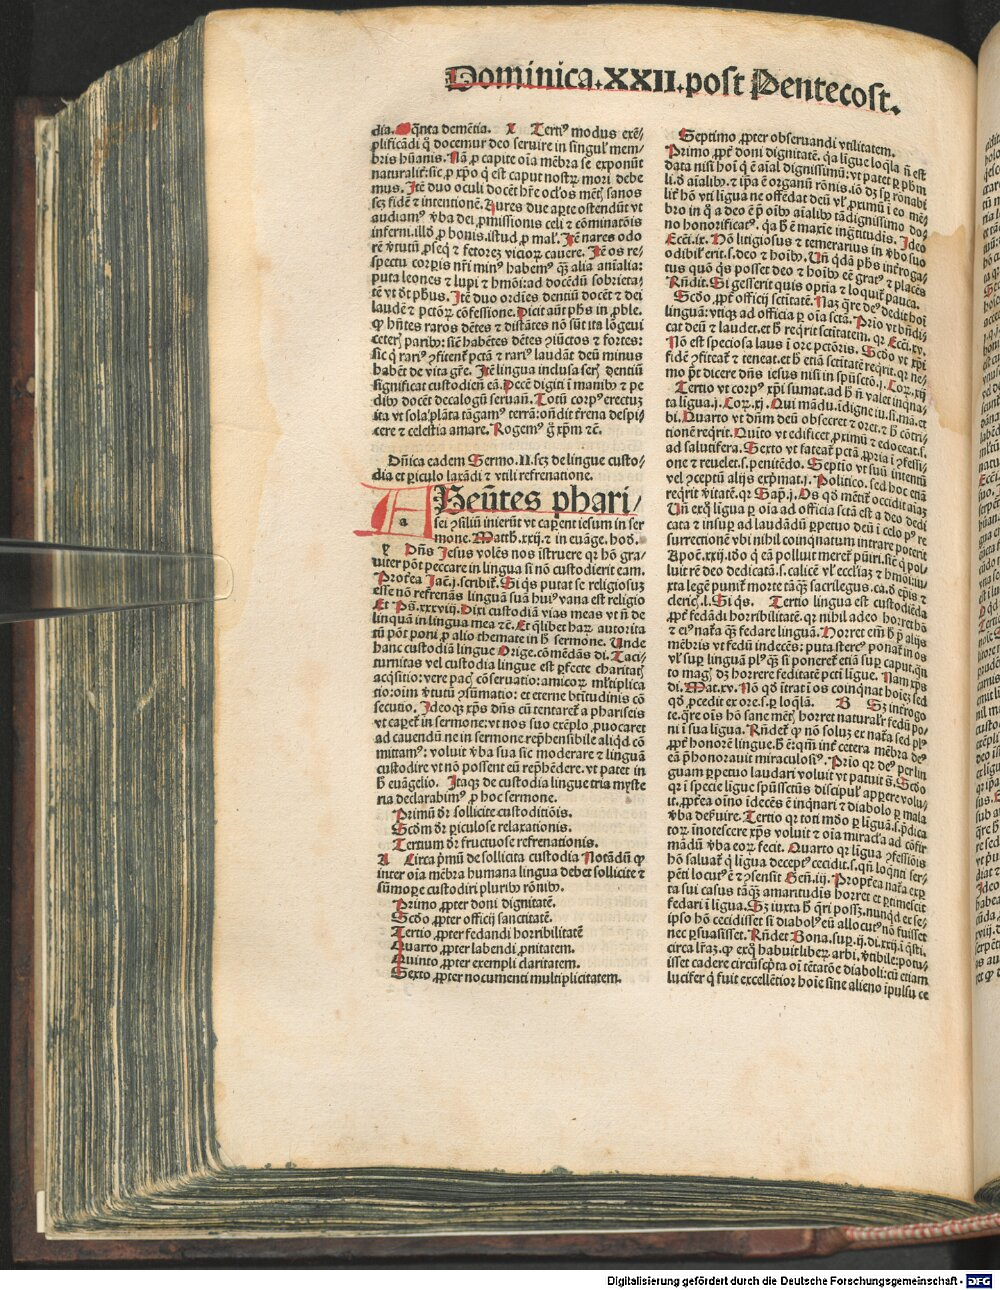 Dominica.XXII.post Pentecost.
dia. Qͥnta demētia. X Tertiꝰ modus exē-
plificādi q̇ docemur deo seruire in singulꝭ mem-
bris hūanis. Nā ꝓ capite oīa mēbra se exponūt
naturalīt̄: sic ꝓ xp̄o q̇ est caput nostꝝ mori debe
mus. Itē duo oculi docēt hr̄e oc̄los mētꝭ sanos
scꝫ fidē ⁊ intentionē. Aures due aꝑte ostendūt vt
audiamꝰ v̄ba dei ꝓmissionis celi ⁊ cōminatōis
inferni. illd̄ ꝓ bonis. istud ꝓ malꝭ. Itē nares odo
rē v̄tutū ꝓseq̄ ⁊ fetoreꝫ vicioꝝ cauere. Itē os re-
spectu corꝑis nr̄i minꝰ habemꝰ q̄ꝫ alia aīalia:
puta leones ⁊ lupi ⁊ hmōi: ad docēdū sobrieta-
tē vt dr̄t pb̄us. Itē duo ordīes dentiū docēt ⁊ dei
laudē ⁊ pctōꝝ cōfessionē. Dicit aūt pb̄s in ꝓble.
ꝙ hn̄tes raros dētes ⁊ distātes nō sūt ita lōgeui
ceterꝭ paribꝰ: sic̄ habētes dētes ꝯiūctos ⁊ fortes:
sic q̇ rariꝰ ꝯfitent̄ pctā ⁊ rariꝰ laudāt deū minus
habēt de vita gr̄e. Itē lingua inclusa serꝭ dentiū
significat custodiēn̄ eā. Decē digiti ī manibꝰ ⁊ pe
dibꝰ docēt decalogū seruan̄. Totū corpꝰ erectuꝫ
ita vt sola plāta tāgamꝰ terrā: on̄dit tr̄ena despi-
cere ⁊ celestia amare. Rogemꝰ g̊ xp̄m ⁊c̄.
Dn̄ica eadem Sermo. II. scꝫ de lingue custo-
dia et ꝑiculo laxādi ⁊ vtili refrenatione.
ABeūtes phari-
sei ꝯsiliū inierūt vt caꝑent iesum in ser
mone. Matth. xxij. ⁊ in euāge. hod̓.
Dn̄s Jesus volēs nos īstruere qꝛ hō gra-
uiter pōt peccare in lingua si nō custodierit eam.
Propt̓ea Jac̄. j. scribit̄. Si q̇s putat se religiosuꝫ
esse nō refrenās linguā suā huiꝰ vana est religio
Et Ps̄. xxxviij. Dixi custodiā vias meas vt n̄ de
linquā in lingua mea ⁊c̄. Et q̇libet haꝝ autorita
tū pōt poni ꝓ alio themate in h̄ sermone. Unde
hanc custodiā lingue Orige. cōmēdās di. Taci-
turnitas vel custodia lingue est ꝑfecte charitatꝭ
acq̇sitio: vere pacꝭ cōseruatio: amicoꝝ mltiplica
tio: oim̄ v̄tutū ꝯsūmatio: et eterne bt̄itudinis cō
secutio. Ideoqꝫ xp̄s dn̄s cū tentaret̄ a phariseis
vt caꝑet̄ in sermone: vt nos suo exēplo ꝓuocaret
ad cauendū ne in sermone rep̄hensibile aliqd̄ cō
mittamꝰ: voluit v̄ba sua sic moderare ⁊ linguā
custodire vt nō possent eū rep̄hēdere. vt patet in
h̄ euāgelio. Itaqꝫ de custodia lingue tria myste
ria declarabimꝰ ꝓ hoc sermone.
Primū dr̄ sollicite custoditiōis.
Scd̄m dr̄ ꝑiculose relaxationis.
Tertium dr̄ fructuose refrenationis.
A Circa p̄mū de sollicita custodia Notādū ꝙ
inter oīa mēbra humana lingua debet sollicite ⁊
sūmoꝑe custodiri pluribꝰ rōnibꝰ.
Primo ꝓpter doni dignitatē.
Scd̄o ꝓpter officij sanctitatē.
Tertio ꝓpter fedandi horribilitatē
Quarto ꝓpter labendi ꝓnitatem.
Quinto ꝓpter exempli claritatem.
Sexto ꝓpter nocumenti multiplicitatem.
Septimo ꝓpter obseruandi vtilitatem.
Primo ꝓpt̓ doni dignitatē. q̇a ligue loq̄la n̄ est
data nisi hoī q̇ ē aīal dignissimū: vt patet ꝑ pb̄m
no honorificatꝰ. q̇a h̄ ē maxie ingr̄titudis. Ideo
Ecc̄i. ix. Nō litigiosus ⁊ temerarius in v̄bo suo
odibilꝭ erit. s. deo ⁊ hoībꝰ. Un̄ q̇dā pb̄s int̓roga-
tus quō q̇s posset deo ⁊ hoībꝰ eē gratꝰ ⁊ placēs
Rn̄dit. Si gesserit quis optīa ⁊ loquit̄ pauca.
Scd̄o ꝓpt̓ officij sc̄titatē. Naꝫ q̄re deꝰ dedit hoī
linguā: vtiqꝫ ad officia ꝑ oīa sctā. Prīo vt bn̄di-
cat deū ⁊ laudet. et h̄ reqrit sc̄titatem. qꝛ Ecc̄i. xv.
Nō est speciosa laus ī ore pctōris. Scd̄o vt xp̄i
fidē ꝯfiteat̄ ⁊ teneat. et h̄ etiā sc̄titatē reqrit. qꝛ ne-
mo pt̄ dicere dn̄s iesus nisi in spūsctō. j. Coꝝ. xij
Tertio vt corpꝰ xp̄i sumat. ad h̄ n̄ valet inqna-
ta ligua. j. Coꝝ. xj. Qui mādu. īdigne iu. si. mā. et
bi. Quarto vt dn̄m deū obsecret ⁊ oret. ⁊ h̄ cōtri-
tionē reqrit. Quīto vt edificet ꝓximū ⁊ edoceat. s.
ad salutifera. Sexto vt fateat̄ pctā ꝓpria ī ꝯfessi-
one ⁊ reuelet. s. penitēdo. Septīo vt suū intentū
vel ꝯceptū alijs exp̄mat. j. Politico. sed hoc etiā
reqrit v̄itatē. qꝛ Sap̄. j. Os qd̄ mētit̄ occidit aīaꝫ
Un̄ exq̇ ligua ꝑ oīa ad officia sctā est a deo dedi
cata ⁊ insuꝑ ad laudādū ꝑpetuo deū ī celo pꝰ re
surrectionē vbi nihil coinqnatum intrare poterit
Apoc̄. xxij. iō q̇ eā polluit meret̄ pūiri. sic̄ q̇ pol-
luit rē deo dedicatā. s. calicē vl̓ ecclīaꝫ ⁊ hmōi: iu-
xta legē punit̄ morte tāq̄ꝫ sacrilegus. ca. d̓ epis̄ ⁊
cleric̄. l. Si q̇s. Tertio lingua est custodiēda
ꝓpt̓ fedādi horribilitatē. qꝛ nihil adeo horret hō
⁊ eiꝰ nat̄a q̄ꝫ fedare linguā. Horret em̄ h̄ ꝓ alijs
mēbris vt fedū indecēs: puta stercꝰ ponat̄ in os
vl̓ suꝑ linguā plꝰ q̄ꝫ si poneret̄ etiā suꝑ caput. qn̄
to magꝭ dꝫ horrere feditatē pcti ligue. Nam xp̄s
di. Mat. xv. Nō qd̄ ītrat ī os coinqnat hoīeꝫ sed
qd̄ ꝓcedit ex ore. s. ꝑ loq̄lā. B Sꝫ int̓rogo
te. q̄re oīs hō sane mētꝭ horret naturalr̄ fedū po-
ni ī sua ligua. Rn̄det̄ q̇ nō soluꝫ ex nat̄a sed plꝰ
ꝓpt̓ honorē lingue. h̄ ē: qm̄ int̓ cetera mēbra deꝰ
eā p̄honorauit miraculosiꝰ. Prīo qꝛ deꝰ per lin
guam ꝑpetuo laudari voluit vt patuit s̄. Scd̄o
qꝛ ī specie ligue spūssctūs discipulꝭ appere volu-
it. ꝓpt̓ea oīno idecēs ē inqnari ⁊ diabolo ꝑ mala
v̄ba deẜuire. Tertio qꝛ toti mdo ꝑ liguā. s. p̄dica
toꝝ īnotescere xp̄s voluit ⁊ oīa miracl̓a ad cōfir
mādū v̄ba eoꝝ fecit. Quarto qꝛ ligua ꝯfessiōis
hō saluat̄ q̇ ligua deceptꝰ cecidit. s. qn̄ loq̄nti ser-
pēti locutꝰ ē ⁊ ꝯsensit Gen̄. iij. Propt̓ea nat̄a exꝑ
ta sui casus tāq̄ꝫ amaritudis horret ⁊ ꝑtimescit
fedari ī ligua. Sꝫ iuxta h̄ q̇ri possꝫ. nunqd̄ et se-
ipso hō cecidisset si diabolꝰ eū allocutꝰ nō fuisset
nec ꝑsuasisset. Rn̄det Bona. suꝑ. ij. di. xxij. ī q̇sti.
circa lr̄aꝫ. ꝙ exq̇ habuit libeꝝ arbi. v̄tibile: potu-
isset cadere circūscp̄ta oī tētatōe diaboli: cū etiam
lucifer q̇ fuit excellētior hoīe sine alieno īpulsu ce
Digitalisierung gefördert durch die Deutsche Forschungsgemeinschaft - DFG